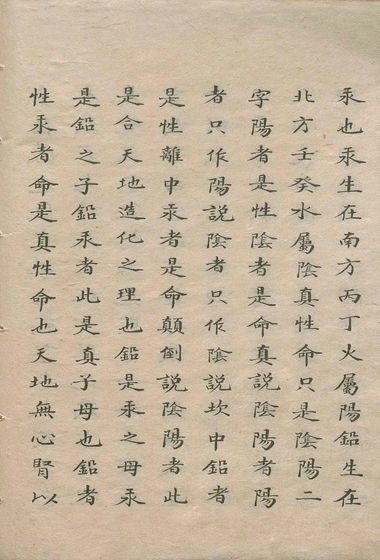 汞也汞生在南方丙丁火屬陽鉛生在
北方壬癸水屬陰真性命只是陰陽二
字陽者是性陰者是命真說陰陽者陽
者只作陽說陰者只作陰說坎中鉛者
是性離中汞者是命顛倒說陰陽者此
是合天地造化之理也鉛是汞之母汞
是鉛之子鉛汞者此是真子母也鉛者
性汞者命是真性命也天地無心腎以